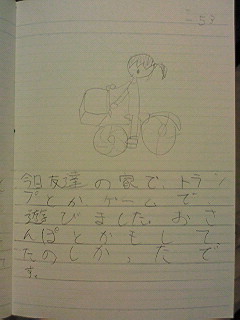 今日友達の家で、トラン
プとかゲームで
遊びました。おさ
んぽとかもして
たのしかったで
す。